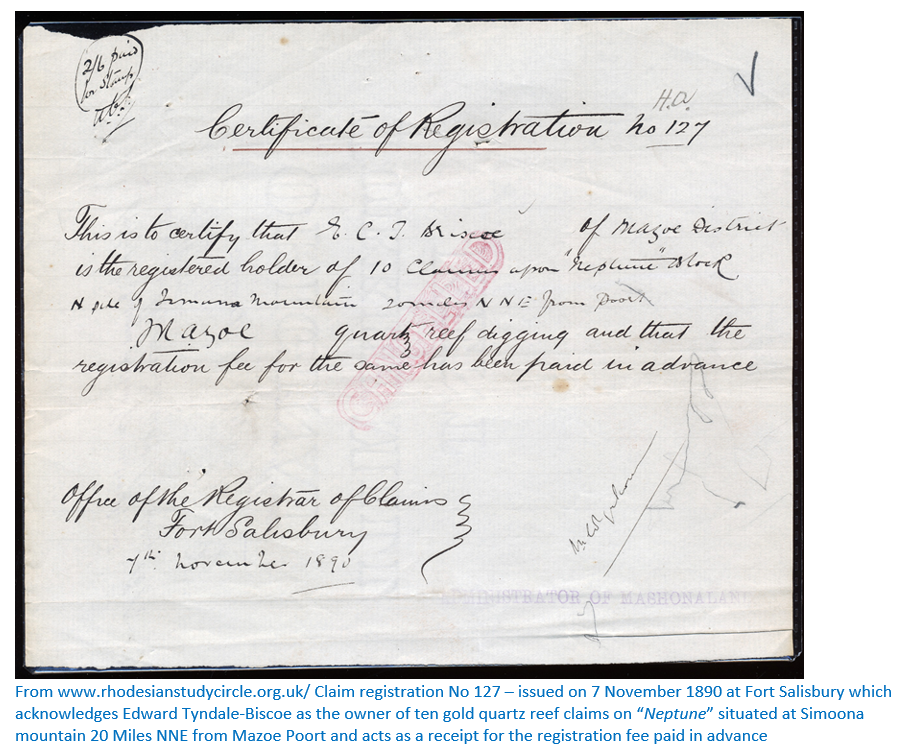 2/6 paid
for stamp
H.A.
Certificate of Registration No 127
This is to certify that E. C. T. Briscoe of Mazoe District
is the registered holder of 10 Claims upon "Neptune" Block
N side of Simoona Mountain 20 miles N N E from Poort
Mazoe quartz reef digging and that the
registration fee for the same has been paid in advance
CANCELLED
Office of the Registrar of Claims
Fort Salisbury
7th November 1890
ADMINISTRATOR OF MASHONALAND
From www.rhodesianstudycircle.org.uk/ Claim registration No 127 – issued on 7 November 1890 at Fort Salisbury which
acknowledges Edward Tyndale-Biscoe as the owner of ten gold quartz reef claims on “Neptune” situated at Simoona
mountain 20 Miles NNE from Mazoe Poort and acts as a receipt for the registration fee paid in advance